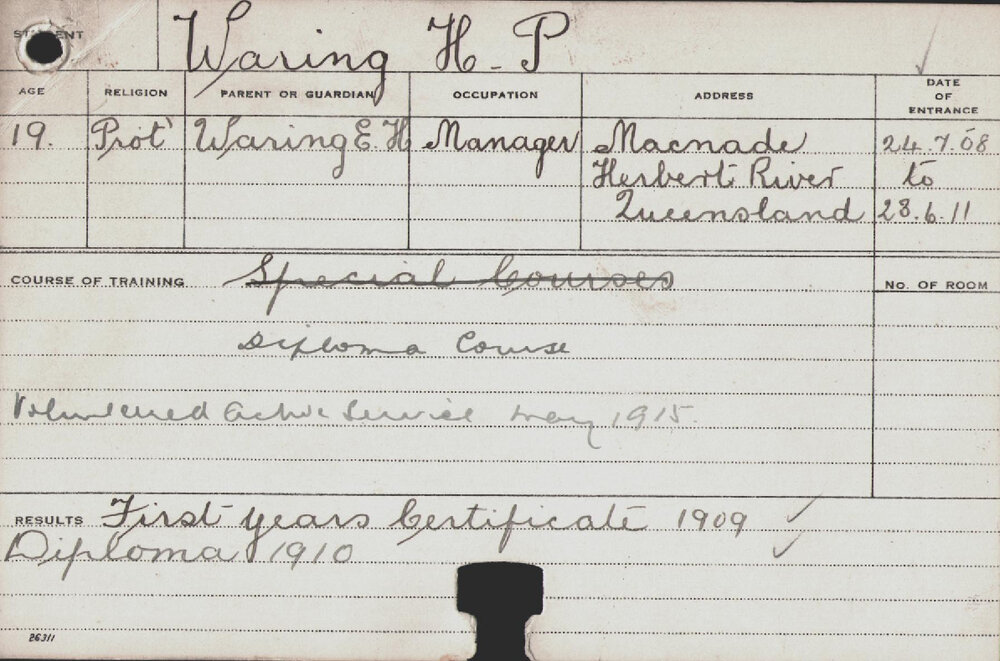 STUDENT Waring H. P
AGE RELIGION PARENT OR GUARDIAN OCCUPATION ADDRESS DATE OF ENTRANCE
19. Prot' Waring E. H Manager Macnade 24.7.08
Herbert River to
Queensland 28.6.11
COURSE OF TRAINING Special Courses No. OF ROOM
Diploma Course
Volunteered Active Service May 1915.
RESULTS First years Certificate 1909 ✓
Diploma 1910 ✓
26311